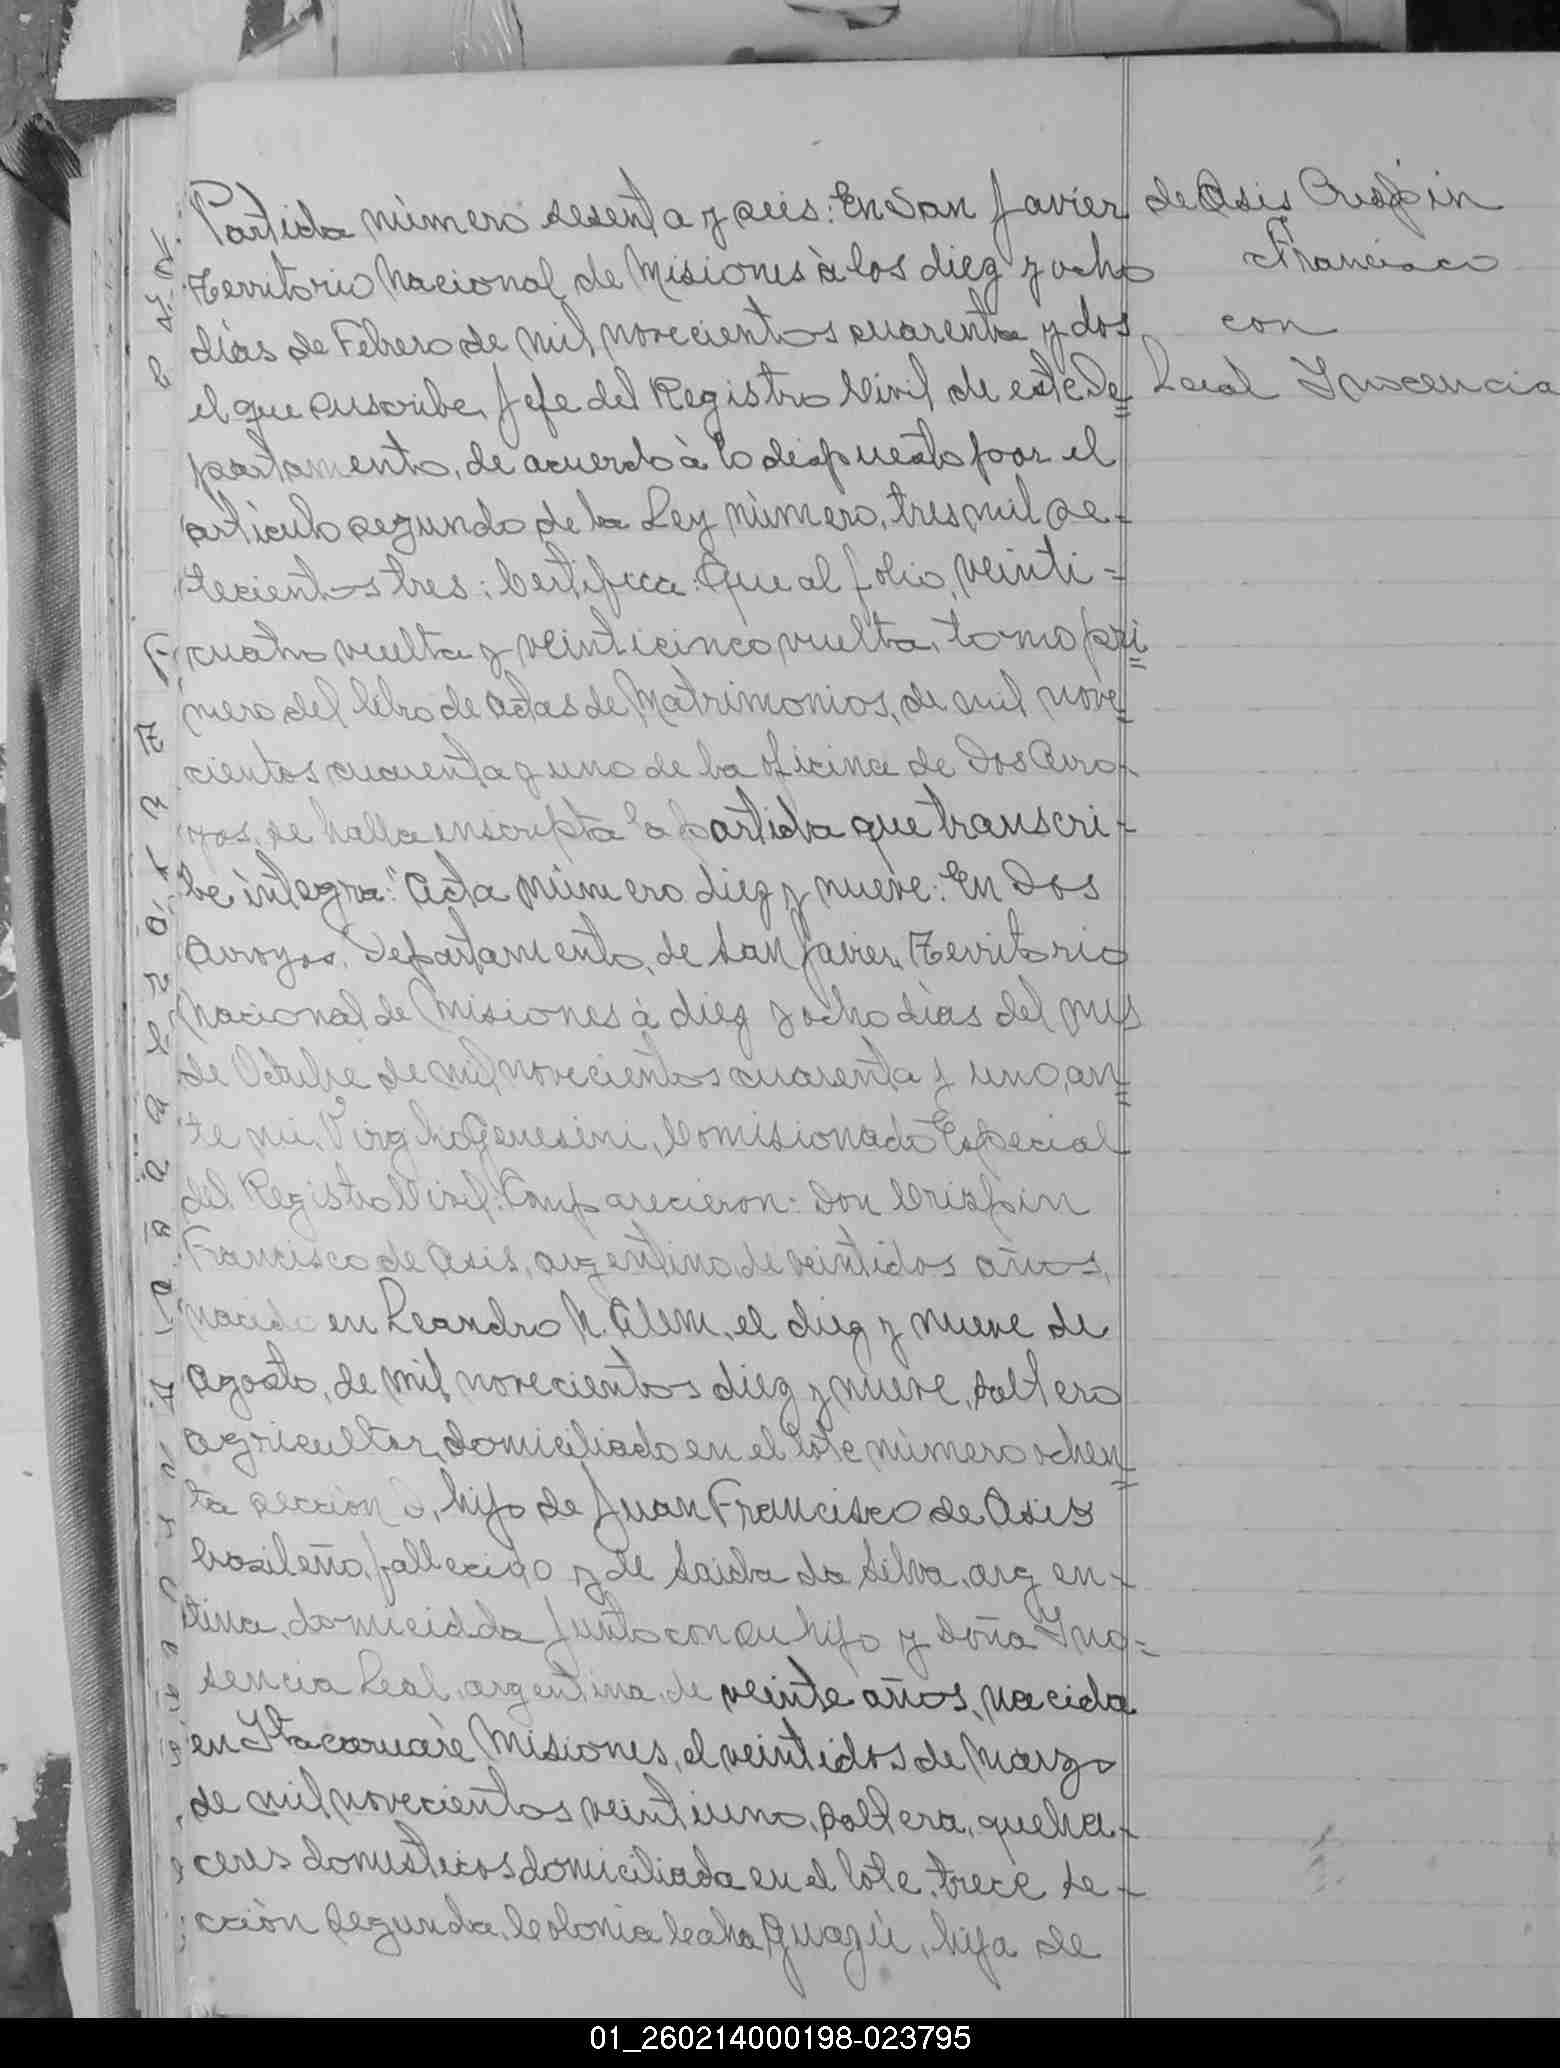 Partida nùmero sesenta y seis: En San Javier
Territorio Nacional de Misiones à los diez y ocho
dìas de Febrero de mil novecientos cuarenta y dos
el que suscribe, Jefe del Registro Civil de este De=
partamento, de acuerdo à lo dispuesto por el
artìculo segundo de la Ley nùmero, tres mil se-
tecientos tres: Certifica: Que al folio, veinti=
cuatro vuelta y veinticinco vuelta, tomo pri=
mero del libro de actas de Matrimonios, de mil nove=
cientos cuarenta y uno de la oficina de Dos Arro-
yos, se halla enscripta la partida que transcri-
be ìntegra: "Acta nùmero diez y nueve: En Dos
Arroyos, Departamento, de San Javier, Territorio
Nacional de Misiones à diez y ocho dìas del mes
de Octubre de mil novecientos cuarenta y uno, an=
te mi, Virgilio Genesini, Comisionado Especial
del Registro Civil: Comparecieron: Don Crispin
Francisco de Asis, argentino, de veintidos años,
nacido en Leandro N. Alem, el diez y nueve de
agosto, de mil novecientos diez y nueve, soltero
agricultor, domiciliado en el lote nùmero ochen=
ta secciòn, hijo de Juan Francisco de Asis
brasileño, fallecido y de Saida da Silva, argen-
tina, domicidda junto con su hijo y Doña Yno=
sencia Leal, argentina, de veinte años, nacida
en Ytacaruarè Misiones, el veintidos de Marzo
de mil novecientos veintiuno, soltera, queha-
ceres domesticos domiciliada en el lote, trece se-
cciòn segunda, Colonia Guazù, hija de
de Asis Crispin
Francisco
con
Leal Ynocencia
01_260214000198-023795